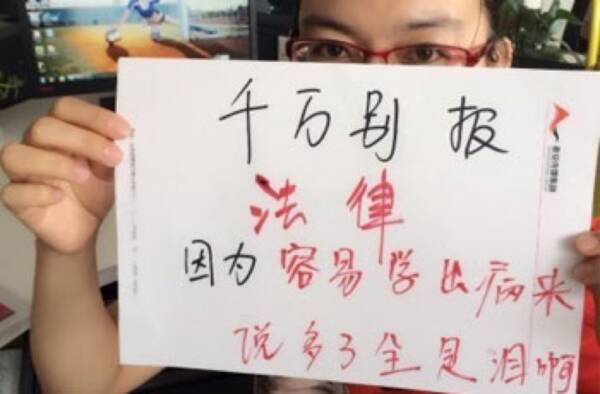 千万别报
法律
因为容易学出病来
说多了全是泪啊